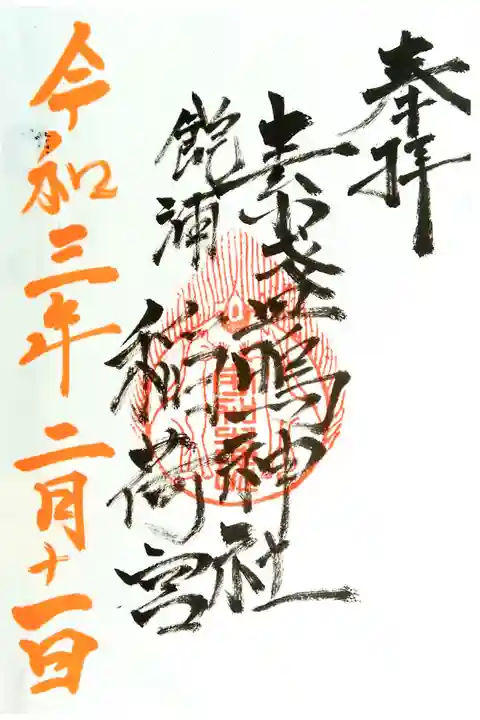 奉拝
素盞嗚神社
飽浦
稲荷宮
令和三年二月十一日